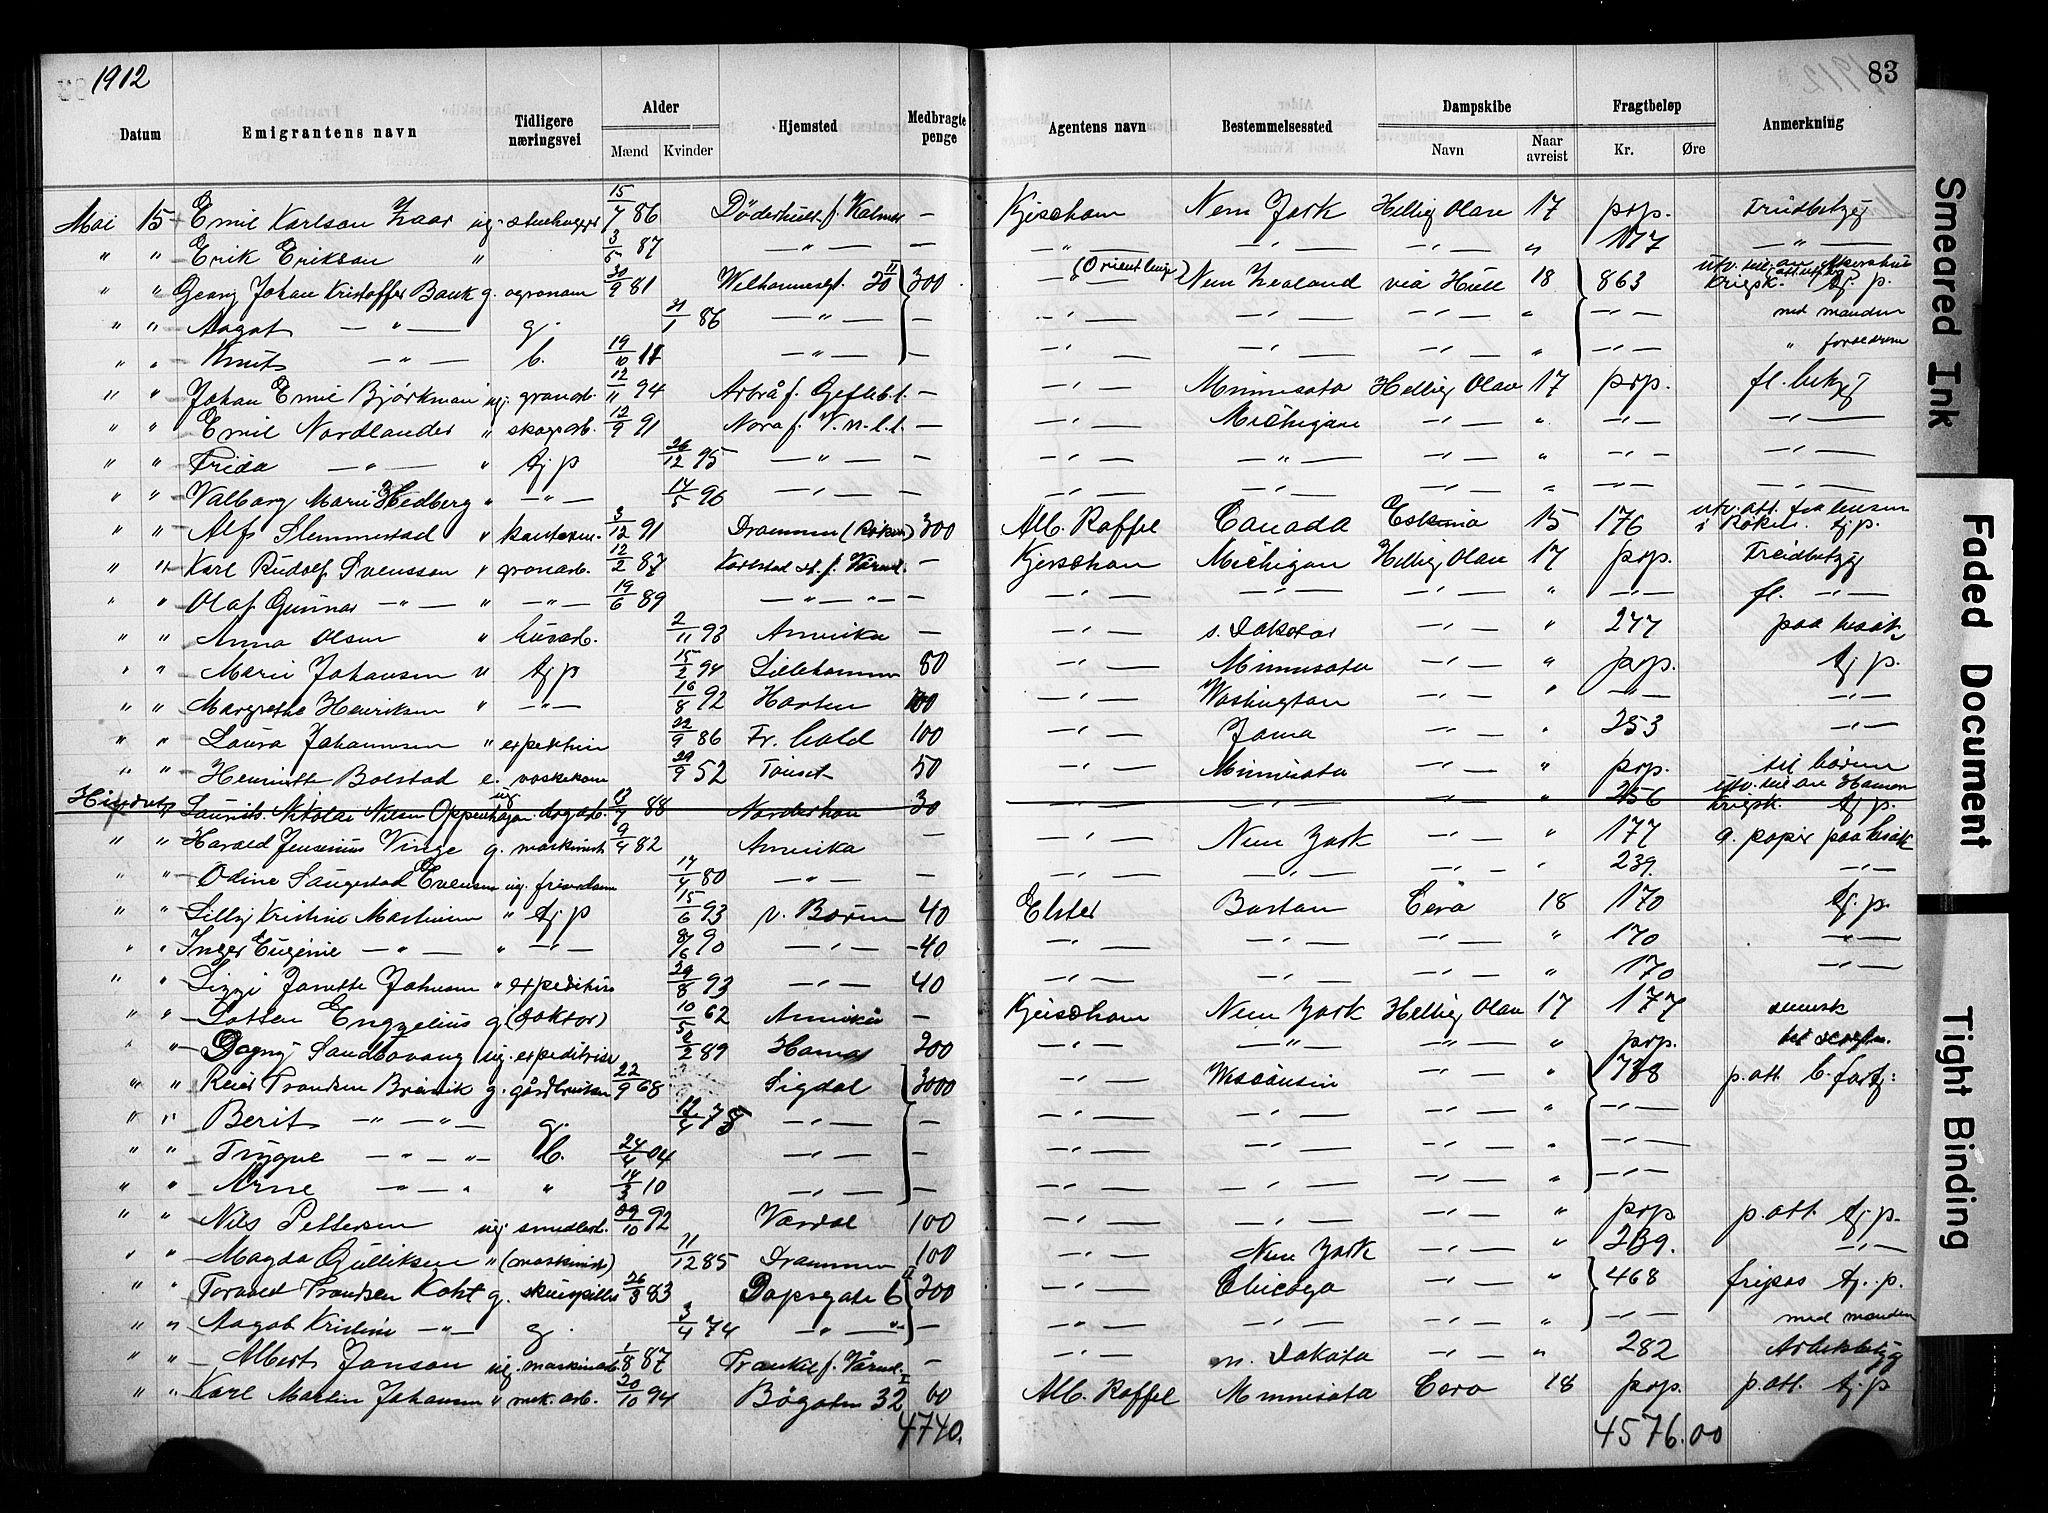 1912
83
Datum | Emigrantens navn | Tidligere næringsvei | Alder Mænd | Kvinder | Hjemsted | Medbragte penge | Agentens navn | Bestemmelsessted | Dampskibe Navn | Naar avreist | Fragtbeløp Kr. | Øre | Anmerkning
Mai 15 Emil Karlson ug. stenhugger 15/7 86 Döderhult f. Kalmar — New York Hellig Olav 17 prp.
" " Erik Erikson " 3/5 87 — " — — — " — — " — — " — " 177 — " —
" " Georg Johan Kristoffer Bank g. agronom 30/9 81 300 (Orientlinje) New Zealand via Hull 18 863 krigsk. tj. p.
" " Aagot — " — g. 31/1 86 — " — — — " — — " — " — " — med manden
" " Knut — " — b. 19/10 11 — " — — — " — — " — — " — " — " — " foreldrene
" " Johan Emil Björkman ug. grovarb. 12/11 94 Arbrå f. Gefleb. l. — — " — Minnesota Hellig Olav 17 prp. fl. betyg
" " Emil Nordlander " skogsarb. 12/9 91 Nora f. V.n.l.l. — — " — Michigan — " — " — " — — " —
" " Frida — " — " tj. p 26/12 95 — " — — — " — — " — — " — " — " — — " —
" " Valborg Marie Hedberg " — " — 14/5 90 — " — — — " — — " — — " — " — " — — " —
" " Alf Slemmestad " kontorm. 3/12 91 Drammen (Röken) 300 Alb. Raffel Canada 15 176 i Röken. tj. p.
" " Karl Rudolf Svensson " grovarb. 12/2 87 Karlstad f. Värml. — Michigan Hellig Olav 17 prp.
" " Olaf Gunnar — " — " — " — 19/6 89 — " — " — — — " — — " — — " — " — " — fl. — " —
" " Anna Olsen " husarb. 2/11 93 Amerika — — " — s. Dakota — " — " 277 paa besök
" " Marie Johansen " tj. p 15/2 94 Lillehammer 80 — " — Minnesota — " — " prp. tj. p.
" " Margrethe Henriksen " — " — 16/8 92 Horten 100 — " — Washington — " — " — " — — " —
" " Laura Johannesen " expeditrice 22/9 86 Fr. hald 100 — " — Jowa — " — " 253 — " —
" " Henriette Bolstad e. vaskekone 29/9 52 Tönset 50 — " — Minnesota — " — " prp. til børnene
Hindret Laurits Nikolai Nilsen Oppenhagen ug. dagarb. 13/7 88 Norderhov 30 — " — — " — " 256 krigsk. tj. p.
" " Harald Jensenius Vinge g. maskinist 9/4 82 Amerika — — " — New York — " — " 177 a. papir paa besök
" " Odine Saugestad Evensen ug. 17/4 80 — " — — " — — " — — " — " 239. — " —
" " Lilly Kristine Martinsen " tj. p 15/6 93 v. Bærum 40 Elster Boston 18 170 tj. p.
" " Inger Eugenie — " — " — " — 8/6 90 — " — 40 — " — — " — " 170 — " —
" " Lizzi Janette Johnsen " expeditrice 29/8 93 — " — 40 — " — — " — " 170 — " —
" " Lotten Engzelius g. (doktor) 10/5 62 Amerika — New York Hellig Olav 17 177 svensk
" " Dagny Sandbovang ug. expeditrice 5/2 89 Hamar 200 — " — — " — — " — " prp.
" " gårdbruker 22/9 68 Sigdal 3000 — " — Wisconsin — " — " 738
" " Berit — " — " — g. 12/4 75 — " — — — " — — " — — " — " — " —
" " Trygve — " — " — b. 24/4 04 — " — — — " — — " — — " — " — " —
" " Arne — " — " " 14/3 10 — " — — — " — — " — — " — " — " —
" " Nils Pettersen ug. smedarb. 29/10 92 Værdal 100 — " — — " — — " — " prp p. att. tj. p.
" " Magda Gulliksen " (maskinist) 11/12 85 Drammen 100 — " — New York — " — " 239. — " —
" " Torvald Trondsen Koht g. skuespiller 26/3 83 Dopsgate 6 200 — " — Chicago — " — " 468 fripas tj. p.
" " Aagot Kristine — " — g. 3/4 74 — " — — — " — — " — — " — " — " — med manden
" " Albert Jonson ug. maskinarb. 1/8 87 f. Värml. — — " — n. Dakota — " — " 282 Arbetsbetyg
" " Karl Martin Johansen " mek. arb. 20/10 94 Bögaten 32 60 Alb. Raffel Minnesota 18 prp. p. att. tj. p
4740. 4576.00
Smeared Ink
Faded Document
Tight Binding